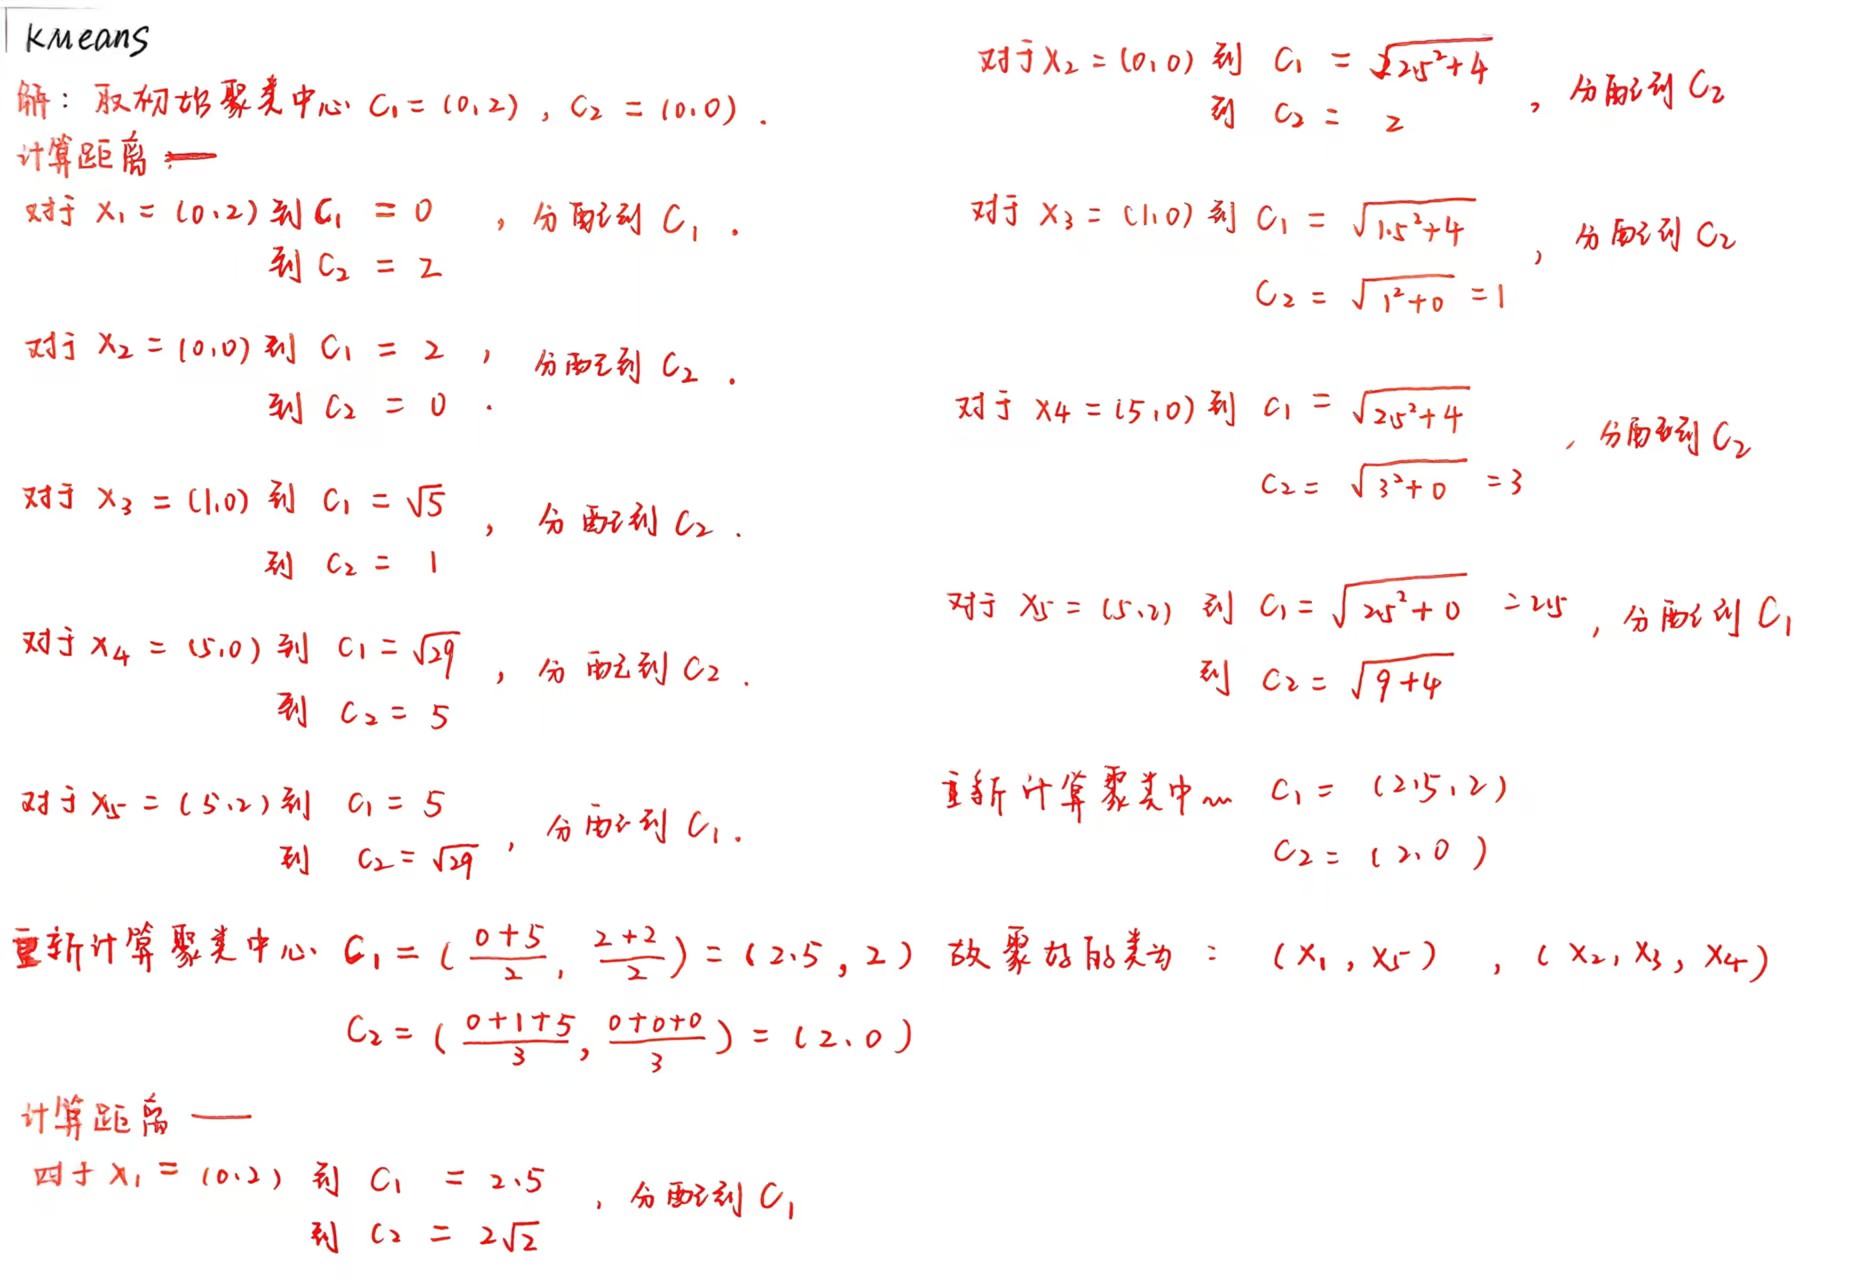 KMeans
解：取初始聚类中心 C₁=(0,2), C₂=(0,0).
计算距离 —
对于 X₁=(0,2) 到 C₁ = 0 , 分配到 C₁.
到 C₂ = 2
对于 X₂=(0,0) 到 C₁ = 2 , 分配到 C₂.
到 C₂ = 0.
对于 X₃=(1,0) 到 C₁ = √5 , 分配到 C₂.
到 C₂ = 1
对于 X₄=(5,0) 到 C₁ = √29 , 分配到 C₂.
到 C₂ = 5
对于 X₅=(5,2) 到 C₁ = 5 , 分配到 C₁.
到 C₂ = √29
重新计算聚类中心 C₁ = ((0+5)/2, (2+2)/2) = (2.5, 2)
C₂ = ((0+1+5)/3, (0+0+0)/3) = (2,0)
计算距离 —
对于 X₁=(0,2) 到 C₁ = 2.5 , 分配到 C₁
到 C₂ = 2√2
对于 X₂=(0,0) 到 C₁ = √(2.5²+4) , 分配到 C₂
到 C₂ = 2
对于 X₃=(1,0) 到 C₁ = √(1.5²+4) , 分配到 C₂
C₂ = √(1²+0) = 1
对于 X₄=(5,0) 到 C₁ = √(2.5²+4) , 分配到 C₂
C₂ = √(3²+0) = 3
对于 X₅=(5,2) 到 C₁ = √(2.5²+0) = 2.5 , 分配到 C₁
到 C₂ = √(9+4)
重新计算聚类中心 C₁ = (2.5,2)
C₂ = (2,0)
故聚好的类为： (X₁, X₅) , (X₂, X₃, X₄)